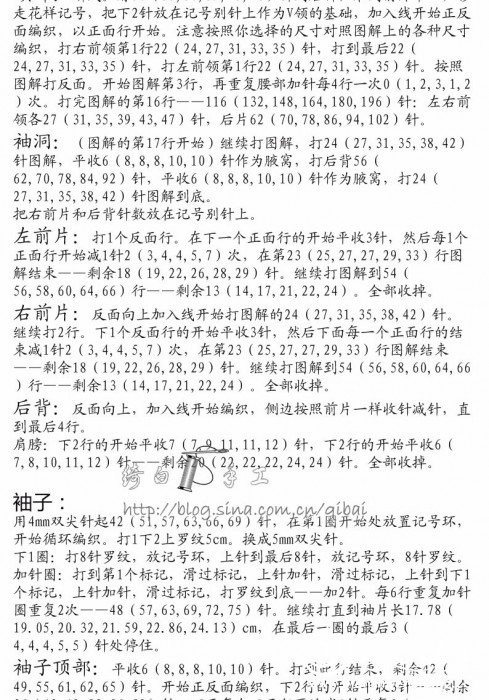 走花样记号，把下2针放在记号别针上作为V领的基础，加入线开始正反
面编织，以正面行开始。注意按照你选择的尺寸对照图解上的各种尺寸
编织，打右前领第1行22（24,27,31,33,35）针，打到最后22（
24,27,31,33,35）针，打左前领第1行22（24,27,31,33,35）针。按照
图解打反面。开始图解第3行，再重复腰部加针每4行一次0（1,2,3,1,2
）次。打完图解的第16行——116（132,148,164,180,196）针：左右前
领各27（31,35,39,43,47）针，后片62（70,78,86,94,102）针。
袖洞：（图解的第17行开始）继续打图解，打24（27,31,35,38,42）
针图解，平收6（8,8,8,10,10）针作为腋窝，打后背56（
62,70,78,84,92）针，平收6（8,8,8,10,10）针作为腋窝，打24（
27,31,35,38,42）针图解到底。
把右前片和后背针数放在记号别针上。
左前片：打1个反面行。在下一个正面行的开始平收3针，然后每1个
正面行开始减1针2（3,4,4,5,7）次，在第23（25,27,27,29,33）行图
解结束——剩余18（19,22,26,28,29）针。继续打图解到54（
56,58,60,64,66）行——剩余13（14,17,21,22,24）。全部收掉。
右前片：反面向上加入线开始打图解的24（27,31,35,38,42）针。
继续打2行。下1个反面行的开始平收3针，然后下面每一个正面行的结
束减1针2（3,4,4,5,7）次，在第23（25,27,27,29,33）行图解结束
——剩余18（19,22,26,28,29）针。继续打图解到54（56,58,60,64,66
）行——剩余13（14,17,21,22,24）。全部收掉。
后背：反面向上，加入线开始编织，侧边按照前片一样收针减针，直
到最后4行。
肩膀：下2行的开始平收7（7,9,11,11,12）针，下2行的开始平收6（
7,8,10,11,12）针——剩余20（22,22,22,24,24）针。全部收掉。
绮白 手工
袖子：
http://blog.sina.com.cn/qibai
用4mm双尖针起42（51,57,63,66,69）针，在第1圈开始处放置记号环，
开始循环编织。打1下2上罗纹5cm。换成5mm双尖针。
下1圈：打8针罗纹，放记号环，上针到最后8针，放记号环，8针罗纹。
加针圈：打到第1个标记，滑过标记，上针加针，滑过标记，上针到下1
个标记，上针加针，滑过标记，打罗纹到底——加2针。每6行重复加针
圈重复2次——48（57,63,69,72,75）针。继续打直到袖片长17.78（
19.05,20.32,21.59,22.86,24.13）cm，在最后一圈的最后3（
4,4,4,5,5）针处停住。
袖子顶部：平收6（8,8,8,10,10）针。打到 行结束，剩余42（
49,55,61,62,65）针。开始正反面编织，下2行的开始平收3针——剩余